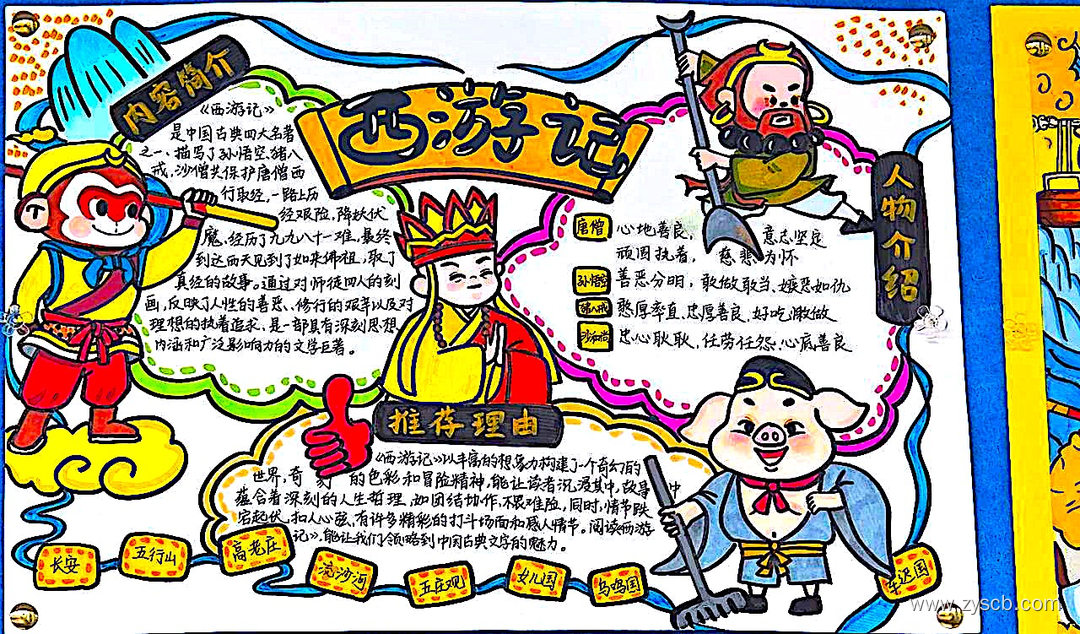 西游记
内容简介
《西游记》
是中国古典四大名著
之一、描写了孙悟空、猪八
戒，沙僧共保护唐僧西
行取经，一路上历
经艰险，降妖伏
魔，经历了九九八十一难，最终
到达西天见到了如来佛祖，取了
真经的故事。通过对师徒四人的刻
画，反映了人性的善恶、修行的艰辛以及对
理想的执着追求、是一部具有深刻思想
内涵和广泛影响力的文学巨著。
人物介绍
唐僧
心地善良， 意志坚定
顽固执着， 慈悲为怀
孙悟空 善恶分明，敢做敢当、嫉恶如仇
猪八戒 憨厚率直、忠厚善良，好吃懒做
沙和尚 忠心耿耿，任劳任怨、心底善良
推荐理由
《西游记》以丰富的想象力构建了一个奇幻的
世界，奇幻的色彩和冒险精神，能让读者沉浸其中，故事中
蕴含着深刻的人生哲理，如团结协作，不畏难险，同时，情节跌
宕起伏，扣人心弦、有许多精彩的打斗场面和感人情节。阅读《西游
记》，能让我们领略到中国古典文字的魅力。
长安
五行山
高老庄
流沙河
五庄观
女儿国
乌鸣国
车迟国
www.zyscb.com